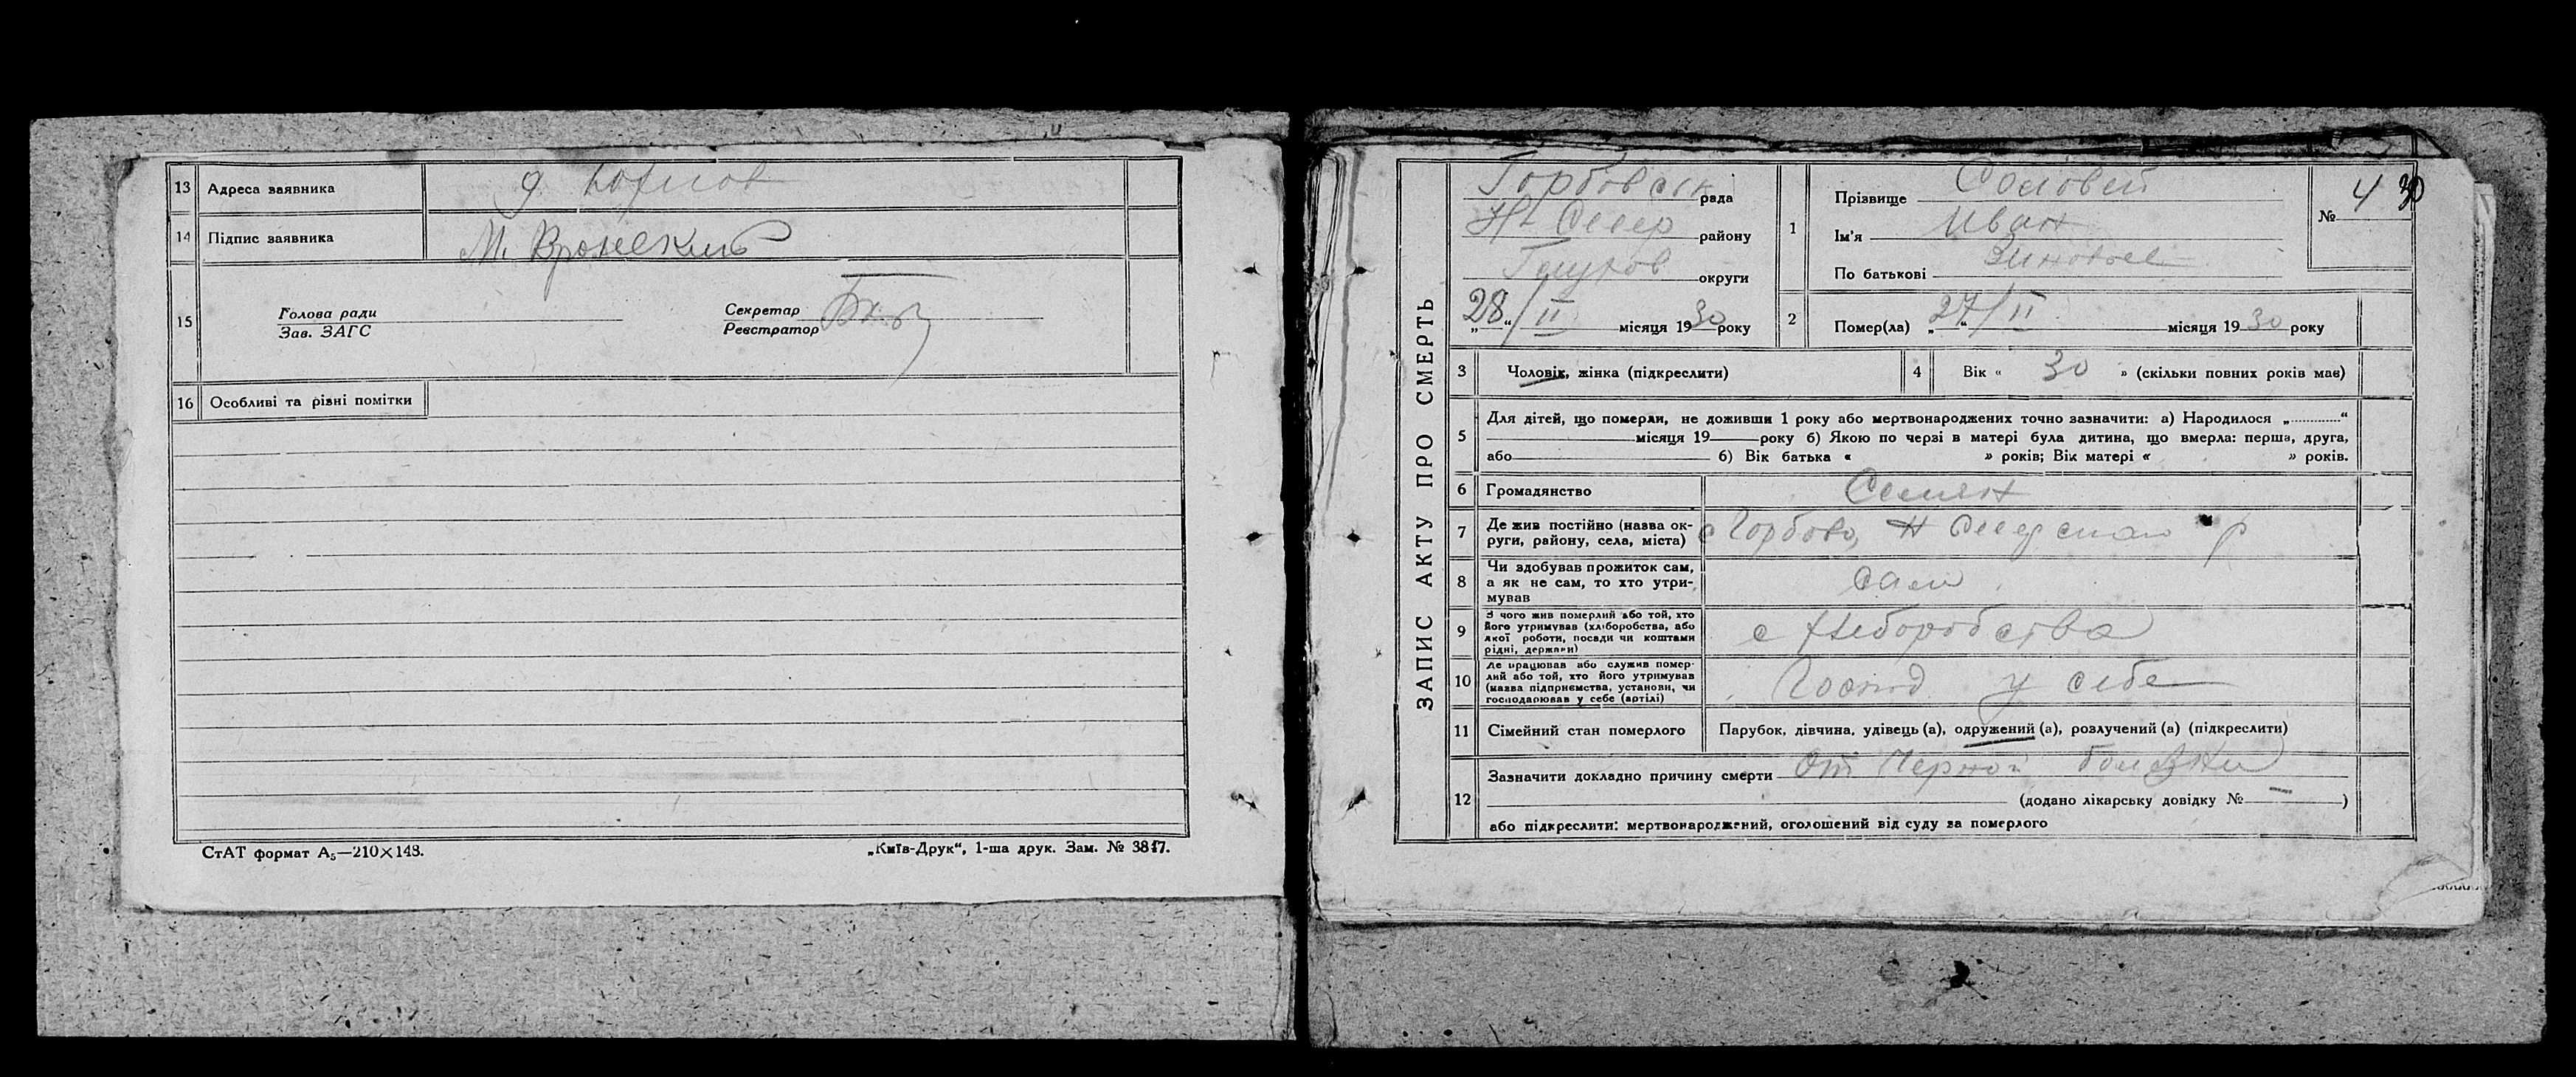 13 Адреса заявника
14 Підпис заявника М. Вронский
15 Голова ради
Зав. ЗАГС
Секретар
Реєстратор
16 Особливі та різні помітки
СтАТ формат А5—210×148.
„Київ-Друк“, 1-ша друк. Зам. № 3847.
ЗАПИС АКТУ ПРО СМЕРТЬ
Горбовськ рада
Н-Север району
округи
„28“/II місяця 1930 року
1 Прізвище Соловей
Ім'я Иван
По батькові Зиновьев
№ 4 30
2 Помер(ла) „27“/II місяця 1930 року
3 Чоловік, жінка (підкреслити)
4 Вік « 30 » (скільки повних років мав)
5 Для дітей, що померли, не доживши 1 року або мертвонароджених точно зазначити: а) Народилося „............“
місяця 19 року б) Якою по черзі в матері була дитина, що вмерла: перша, друга,
або б) Вік батька « » років; Вік матері « » років.
6 Громадянство Селян
7 Де жив постійно (назва ок-
руги, району, села, міста) с Горбово, Н Северского р
8 Чи здобував прожиток сам,
а як не сам, то хто утри-
мував сам
9 З чого жив померлий або той, хто
його утримував (хліборобства, або
якої роботи, посади чи коштами
рідні, держави) с хлеборобства
10 Де працював або служив помер-
лий або той, хто його утримував
(назва підприємства, установи, чи
господарював у себе (артілі) Господ у себе
11 Сімейний стан померлого Парубок, дівчина, удівець (а), одружений (а), розлучений (а) (підкреслити)
12 Зазначити докладно причину смерти От Черной болезни
(додано лікарську довідку № — )
або підкреслити: мертвонароджений, оголошений від суду за померлого